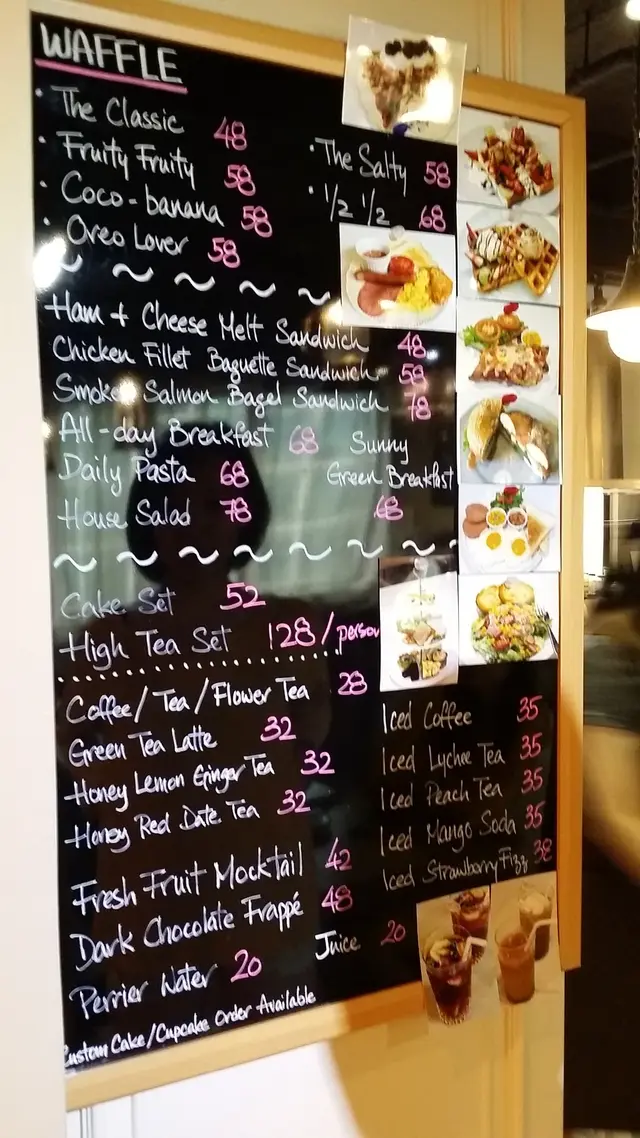 WAFFLE
· The Classic 48
· Fruity Fruity 58
· Coco-banana 58
· Oreo Lover 58
· The Salty 58
· 1/2 1/2 68
Ham + Cheese Melt Sandwich 48
Chicken Fillet Baguette Sandwich 58
Smoked Salmon Bagel Sandwich 78
All-day Breakfast 68
Daily Pasta 68
House Salad 78
Sunny
Green Breakfast
68
Cake Set 52
High Tea Set 128/person
Coffee/Tea/Flower Tea 28
Green Tea Latte 32
Honey Lemon Ginger Tea 32
Honey Red Date Tea 32
Fresh Fruit Mocktail 42
Dark Chocolate Frappé 48
Perrier Water 20
Juice 20
Iced Coffee 35
Iced Lychee Tea 35
Iced Peach Tea 35
Iced Mango Soda 35
Iced Strawberry Fizz 38
Custom Cake/Cupcake Order Available